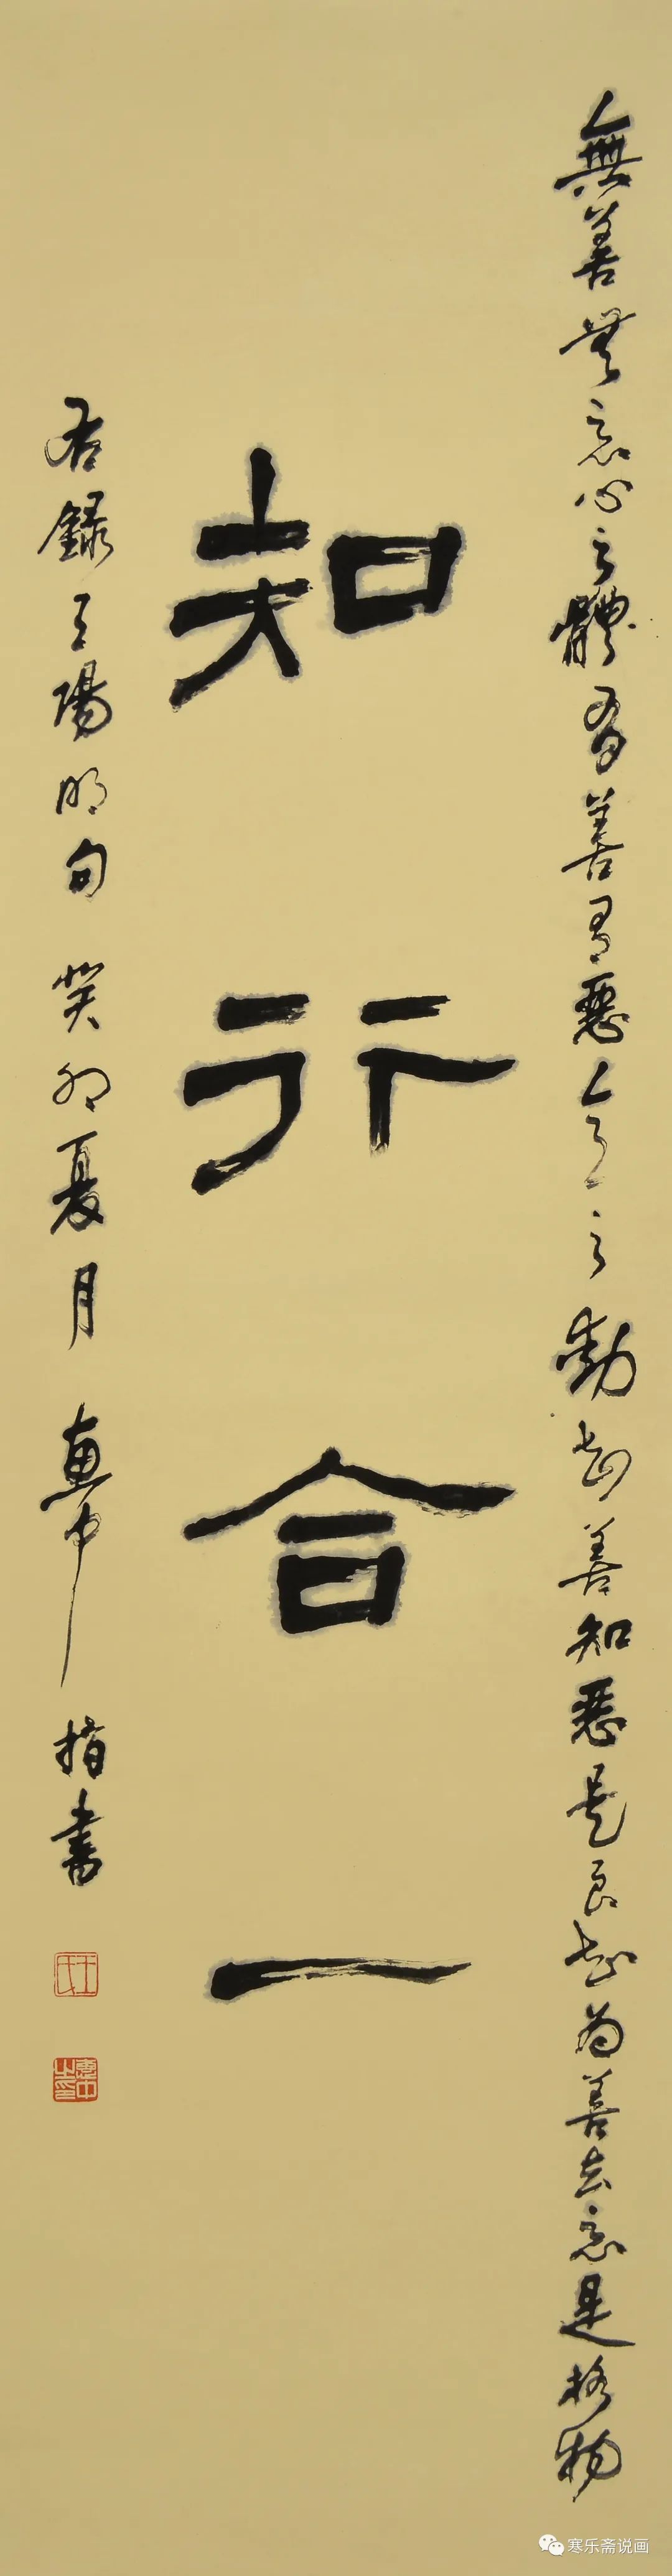 無善無惡心之體有善有惡意之動知善知惡是良知為善去惡是格物
知行合一
右錄王陽明句癸卯夏月惠中指書
王氏
惠中之印
寒乐斋说画